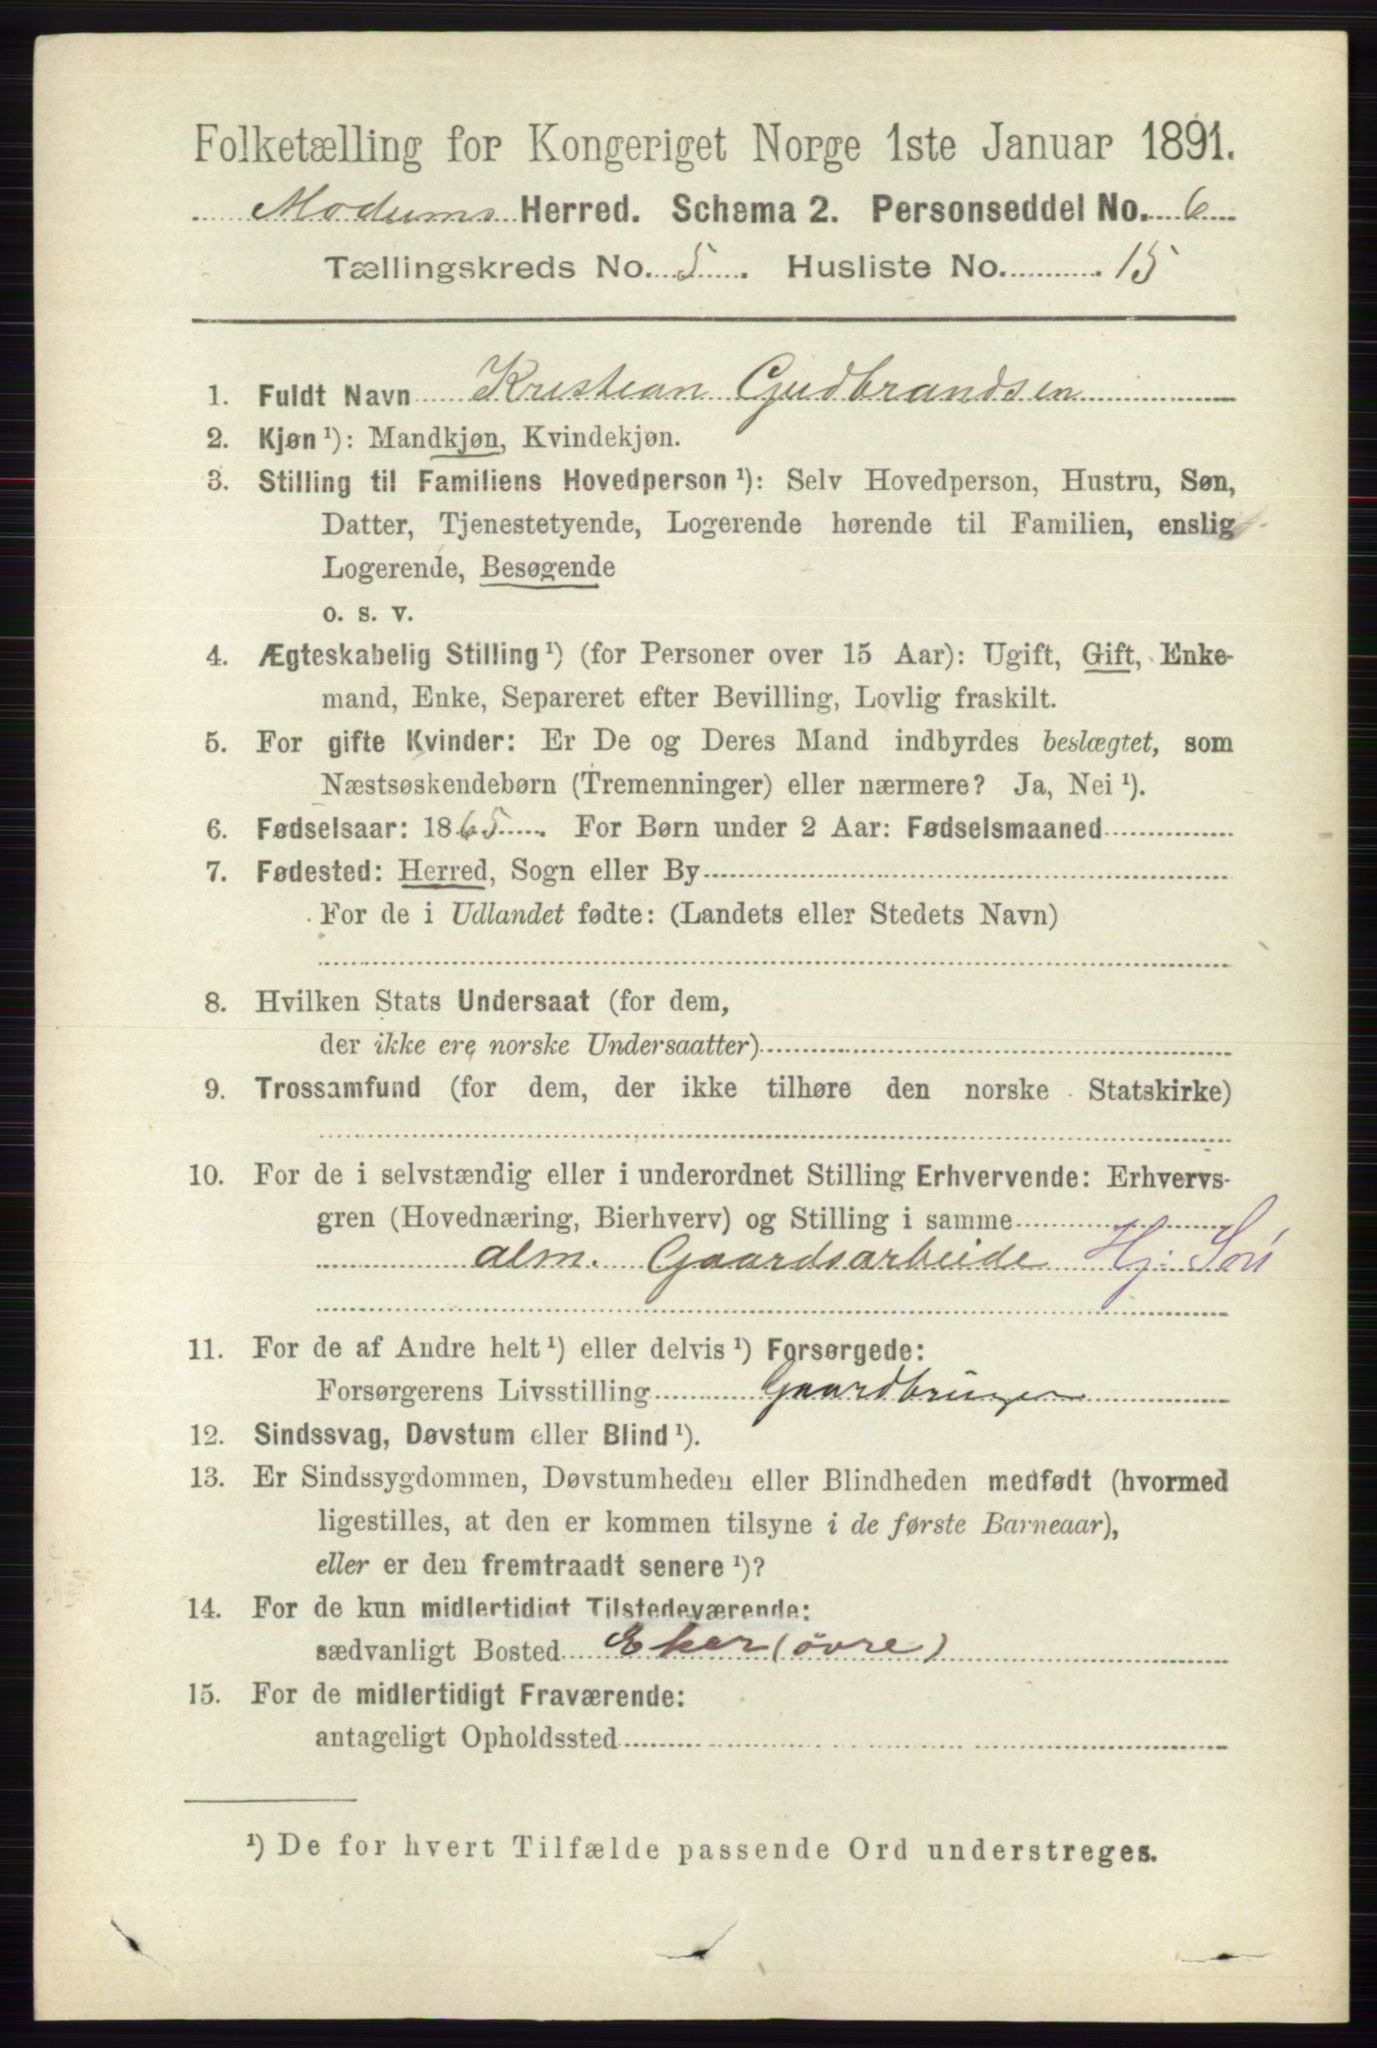 Folketælling for Kongeriget Norge 1ste Januar 1891.
Modums Herred. Schema 2. Personseddel No. 6
Tællingskreds No. 5. Husliste No. 15
1. Fuldt Navn Kristian Gudbrandsen
2. Kjøn ¹): Mandkjøn, Kvindekjøn.
3. Stilling til Familiens Hovedperson ¹): Selv Hovedperson, Hustru, Søn,
Datter, Tjenestetyende, Logerende hørende til Familien, enslig
Logerende, Besøgende
o. s. v.
4. Ægteskabelig Stilling ¹) (for Personer over 15 Aar): Ugift, Gift, Enke-
mand, Enke, Separeret efter Bevilling, Lovlig fraskilt.
5. For gifte Kvinder: Er De og Deres Mand indbyrdes beslægtet, som
Næstsøskendebørn (Tremenninger) eller nærmere? Ja, Nei ¹).
6. Fødselsaar: 1865. For Børn under 2 Aar: Fødselsmaaned
7. Fødested: Herred, Sogn eller By
For de i Udlandet fødte: (Landets eller Stedets Navn)
8. Hvilken Stats Undersaat (for dem,
der ikke ere norske Undersaatter)
9. Trossamfund (for dem, der ikke tilhøre den norske Statskirke)
10. For de i selvstændig eller i underordnet Stilling Erhvervende: Erhvervs-
gren (Hovednæring, Bierhverv) og Stilling i samme
alm. Gaardsarbeide Hj: Søn
11. For de af Andre helt ¹) eller delvis ¹) Forsørgede:
Forsørgerens Livsstilling Gaardbruger
12. Sindssvag, Døvstum eller Blind ¹).
13. Er Sindssygdommen, Døvstumheden eller Blindheden medfødt (hvormed
ligestilles, at den er kommen tilsyne i de første Barneaar),
eller er den fremtraadt senere ¹)?
14. For de kun midlertidigt Tilstedeværende:
sædvanligt Bosted Eker (øvre)
15. For de midlertidigt Fraværende:
antageligt Opholdssted
¹) De for hvert Tilfælde passende Ord understreges.